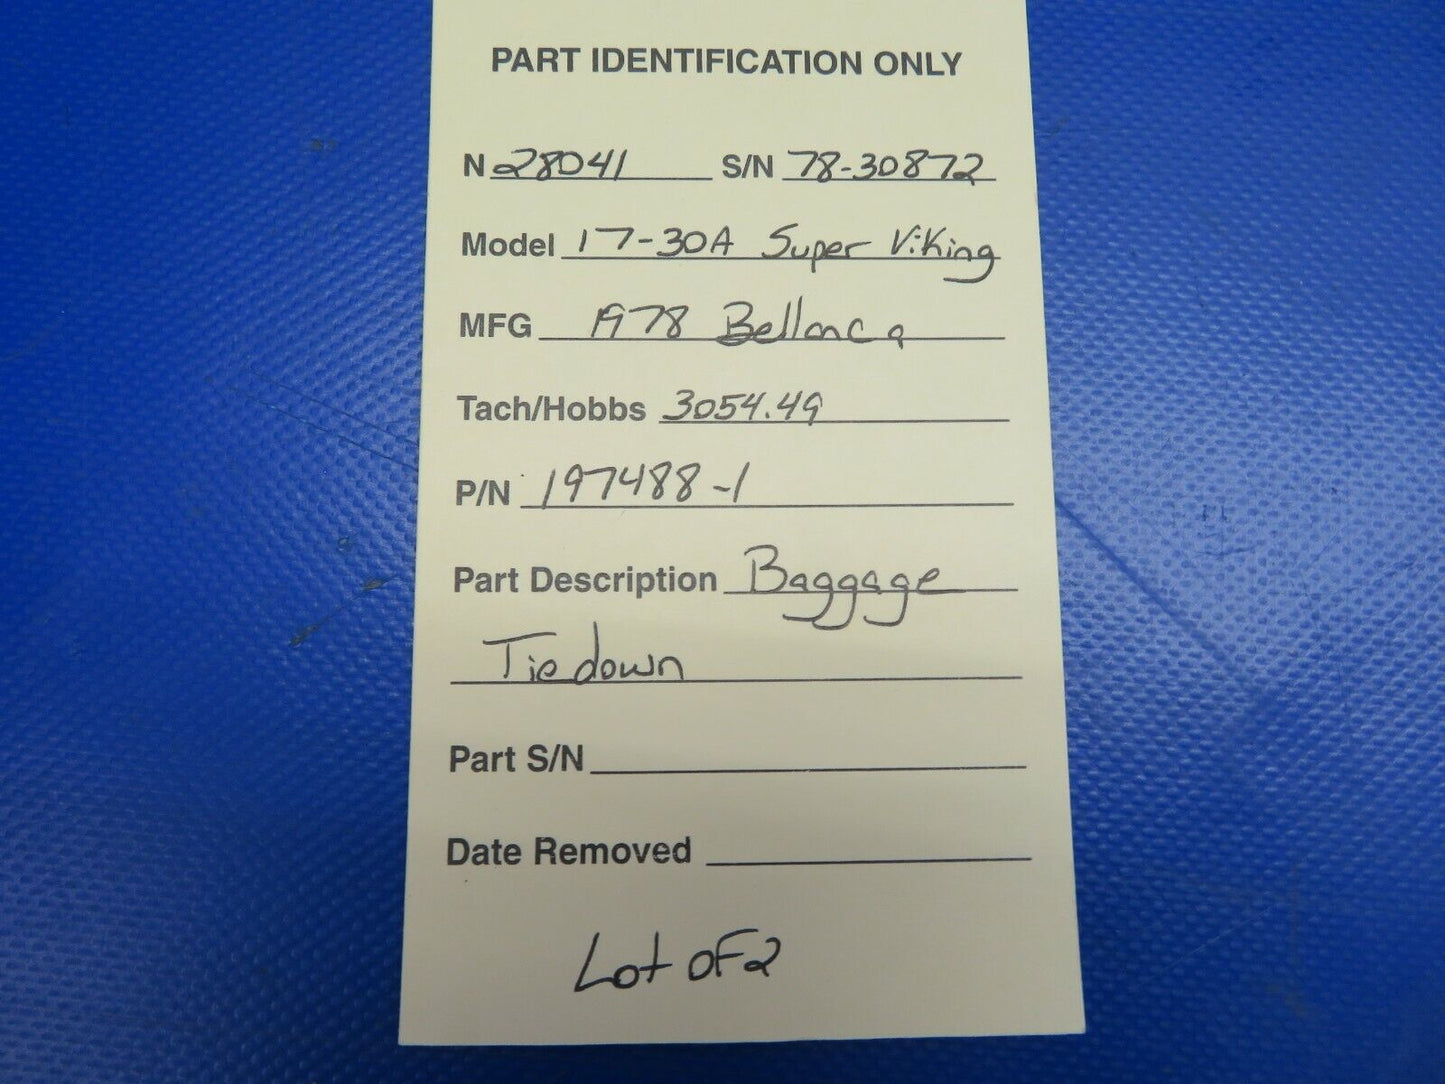 PART IDENTIFICATION ONLY
N 28041 S/N 78-30872
Model 17-30A Super Viking
MFG 1978 Bellanca
Tach/Hobbs 3054.49
P/N 197488-1
Part Description Baggage
Tiedown
Part S/N
Date Removed
Lot of 2